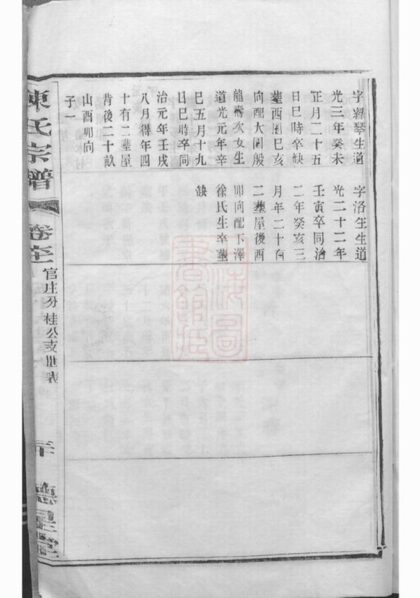 字親琴生道
光三年癸未
正月二十五
日巳時卒缺
葬西園巳亥
向配大園殷
龍壽次女生
道光元年辛
巳五月十九
日巳時卒同
治元年壬戌
八月得年四
十有二葬屋
背後二十畝
山酉卯向
子一
字洛生生道
光二十二年
壬寅卒同治
二年癸亥三
月年二十有
二葬屋後酉
卯向配下澤
徐氏生卒葬
缺
陳氏宗譜
卷
官庄分桂公支世表
德星堂